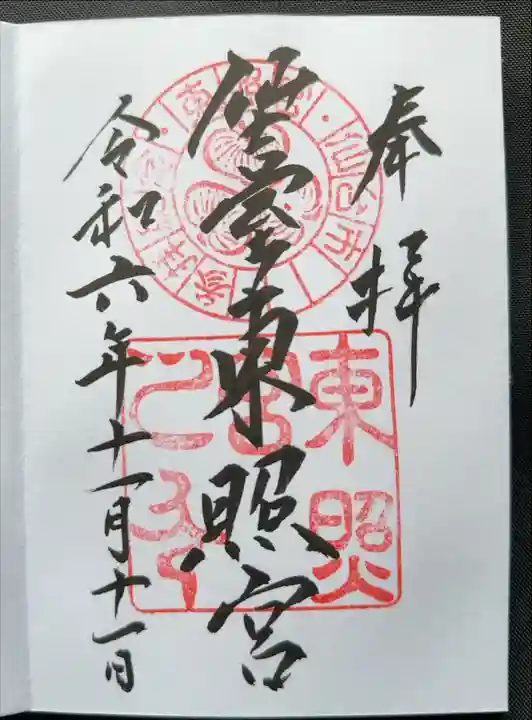 奉拝
仙臺東照宮
令和六年十一月十一日
東照
宮